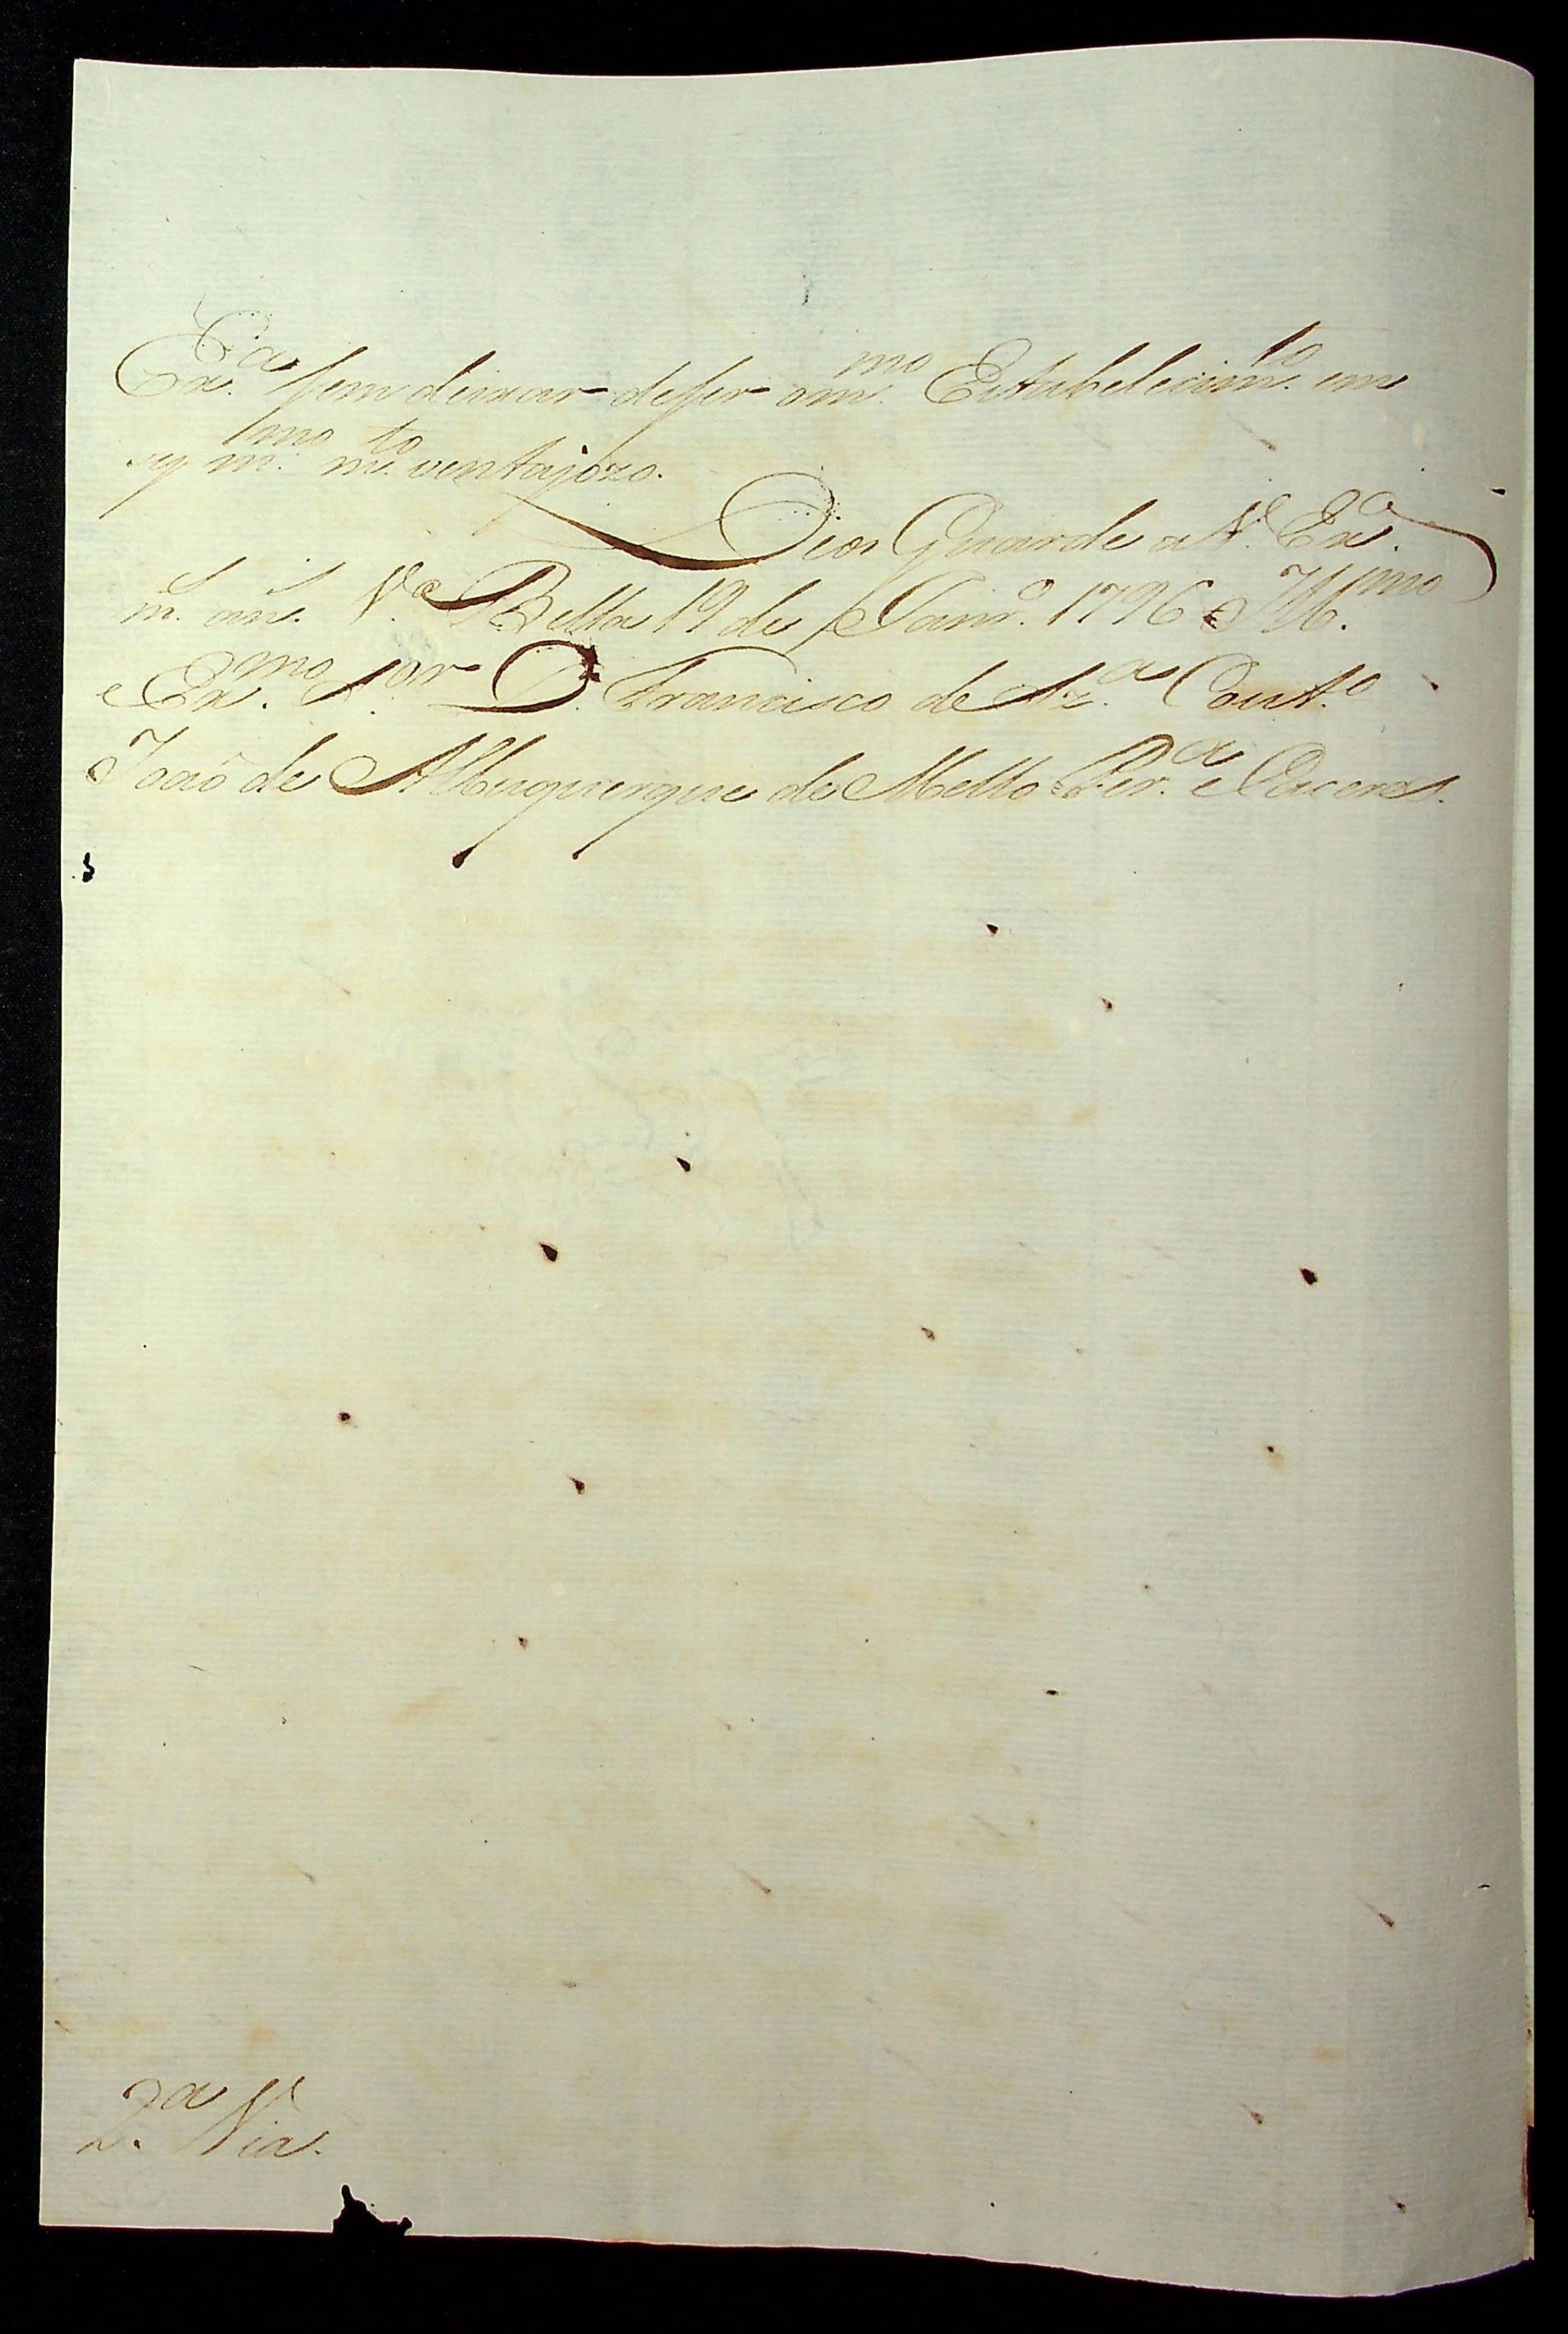 Ex.ª sem deixar de ser o m.mo Estabelecim.to em
sy m.mo m.to ventajozo.
Deos Guarde a V. Ex.ª
m.s an.s V.ª Bella 19 de Janr.º 1796 Ill.mo
e Ex.mo S.or D. Francisco de Sz.ª Cout.º
João de Albuquerque de Mello Per.ª e Caceres.
2.ª Via.